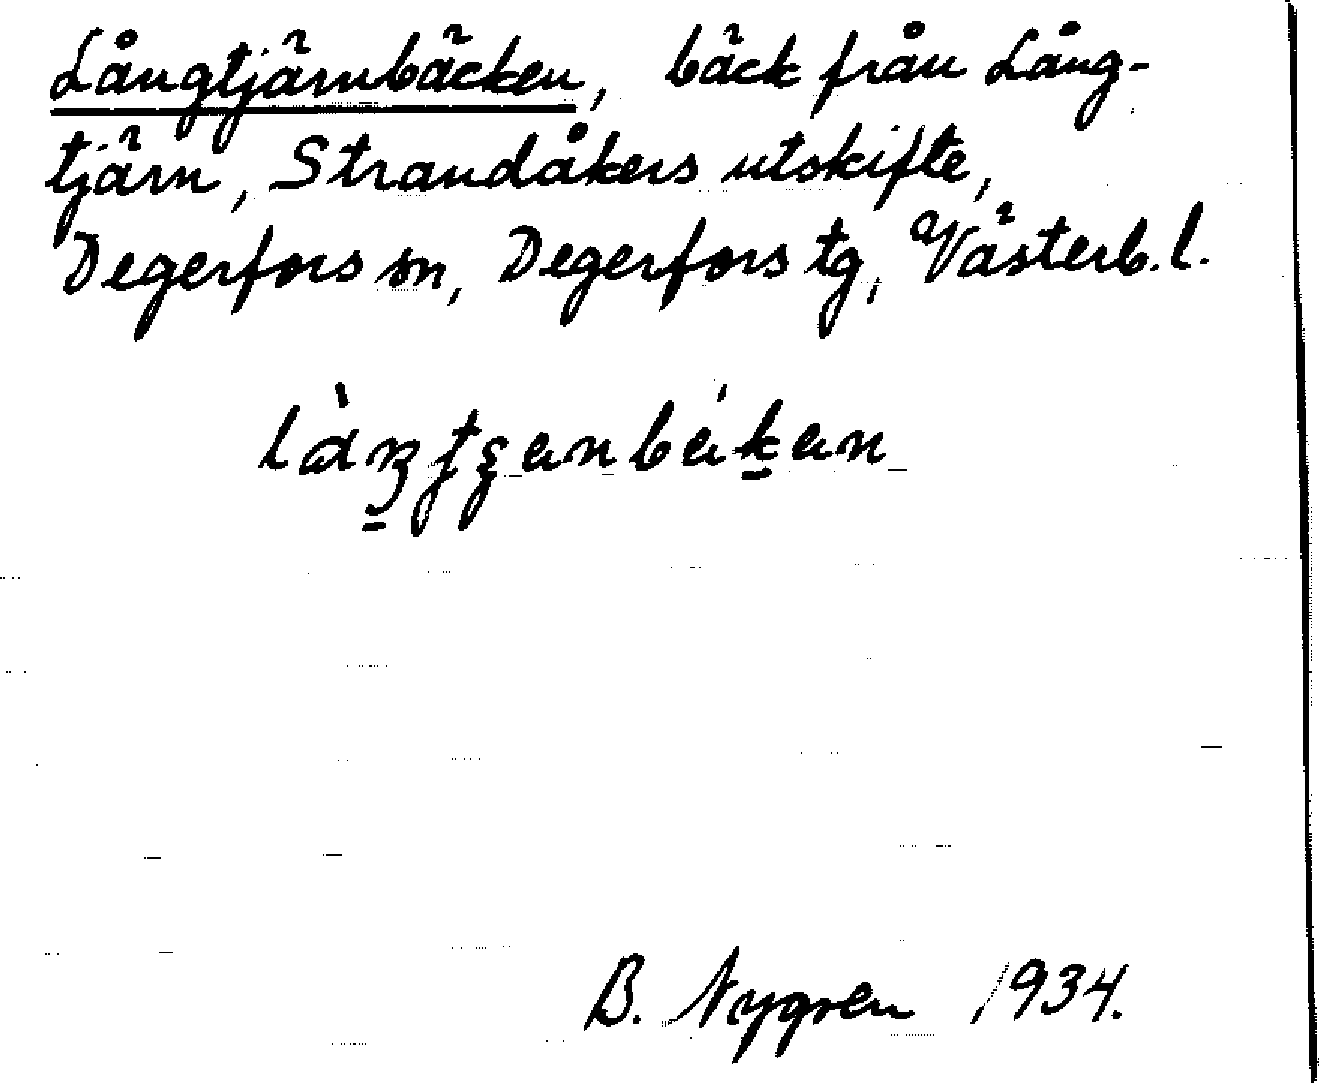 Långtjärnbäcken, bäck från Lång-
tjärn, Strandåkers utskifte,
Degerfors sn, Degerfors tg, Västerb.l.
B. Nygren 1934.